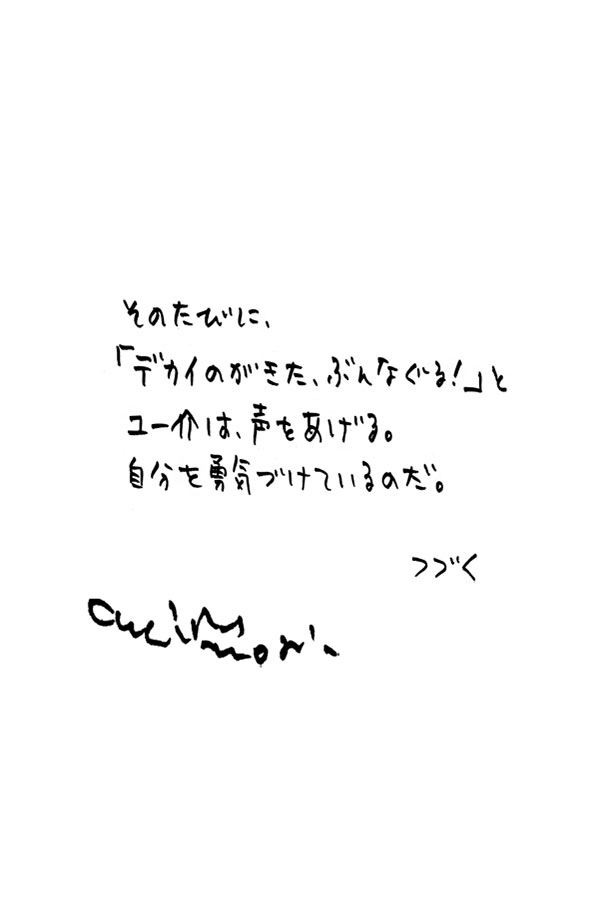 そのたびに、
「デカイのがきた、ぶんなぐる!」と
ユー介は、声をあげる。
自分を勇気づけているのだ。
つづく